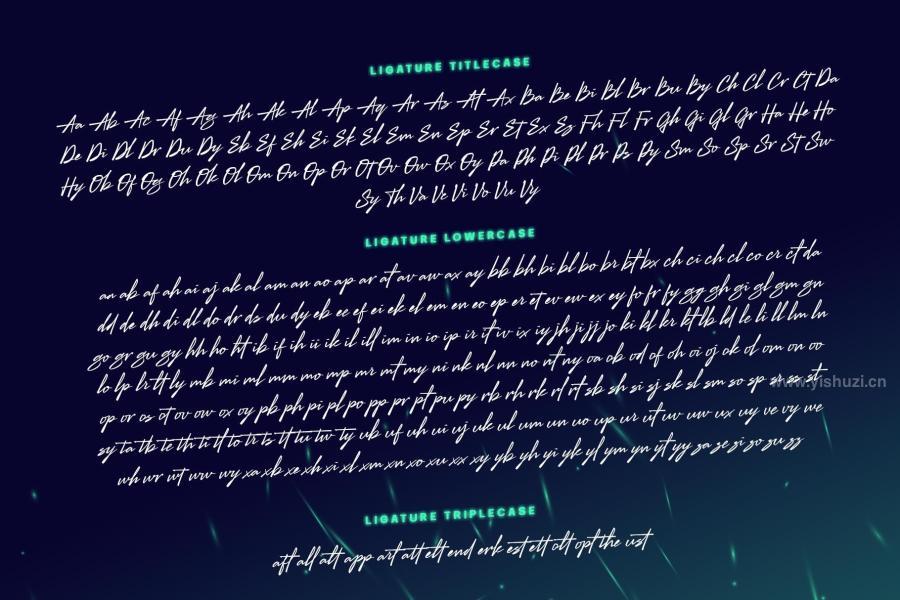 LIGATURE TITLECASE
Aa Ab Ac Af Ag Ah Ak Al Ap Aq Ar As At Ax Ba Be Bi Bl Br Bu By Ch Cl Cr Ct Da
De Di Dl Dr Du Dy Eb Ef Eh Ei Ek El Em En Ep Er Et Ex Es Fh Fl Fr Gh Gi Gl Gr Ha He Ho
Hy Ob Of Og Oh Ok Ol Om On Op Or Ot Ov Ow Ox Oy Pa Ph Pi Pl Pr Ps Py Sm So Sp Sr St Sw
Sy Th Va Ve Vi Vo Vu Vy
LIGATURE LOWERCASE
an ab af ah ai aj ak al am an ao ap ar at av aw ax ay bb bh bi bl bo br bt bx ch ci ch cl co cr ct da
dd de dh di dl do dr ds du dy eb ee ef ei ek el em en eo ep er et ev ew ex ey fo fr fy gg gh gi gl gm gn
go gr gu gy hh ho ht ib if ih ii ik il ill im in io ip ir it iv ix iy jh ji jj jo ki kl kr kt lb ld le li ll lm ln
lo lp lr lt ly mb mi ml mm mo mp mr mt my ni nk nl nn no nt ny oa ob od of oh oi oj ok ol om on oo
op or os ot ov ow ox oy pb ph pi pl po pp pr pt pu py rb rh rk rl rt sb sh si sj sk sl sm so sp sr ss st
sy ta tb te th ti tl to tr ts tt tu tw ty ub uf uh ui uj uk ul um un uo up ur ut uv uw ux uy ve vy we
wh wr wt ww wy xa xb xe xh xi xl xm xn xo xu xx xy yb yh yi yk yl ym yn yt yy za ze zi zo zu zz
www.yishuzi.cn
LIGATURE TRIPLECASE
aft all alt app art att elt end erk est ett olt opt the ust